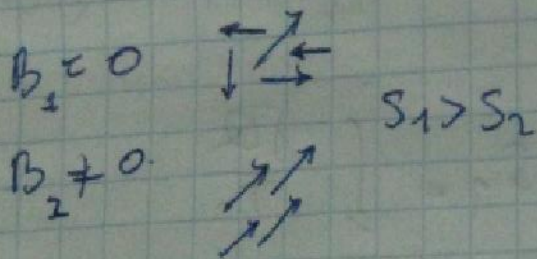 B₁ = 0
S₁ > S₂
B₂ ≠ 0